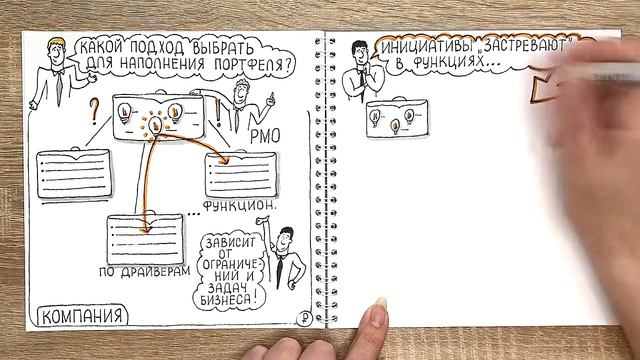 КАКОЙ ПОДХОД ВЫБРАТЬ
ДЛЯ НАПОЛНЕНИЯ ПОРТФЕЛЯ?
?
!
РМО
ФУНКЦИОН.
...
ПО ДРАЙВЕРАМ
ЗАВИСИТ
ОТ
ОГРАНИЧЕ-
НИЙ И
ЗАДАЧ
БИЗНЕСА!
КОМПАНИЯ
₽
ИНИЦИАТИВЫ „ЗАСТРЕВАЮТ"
В ФУНКЦИЯХ...